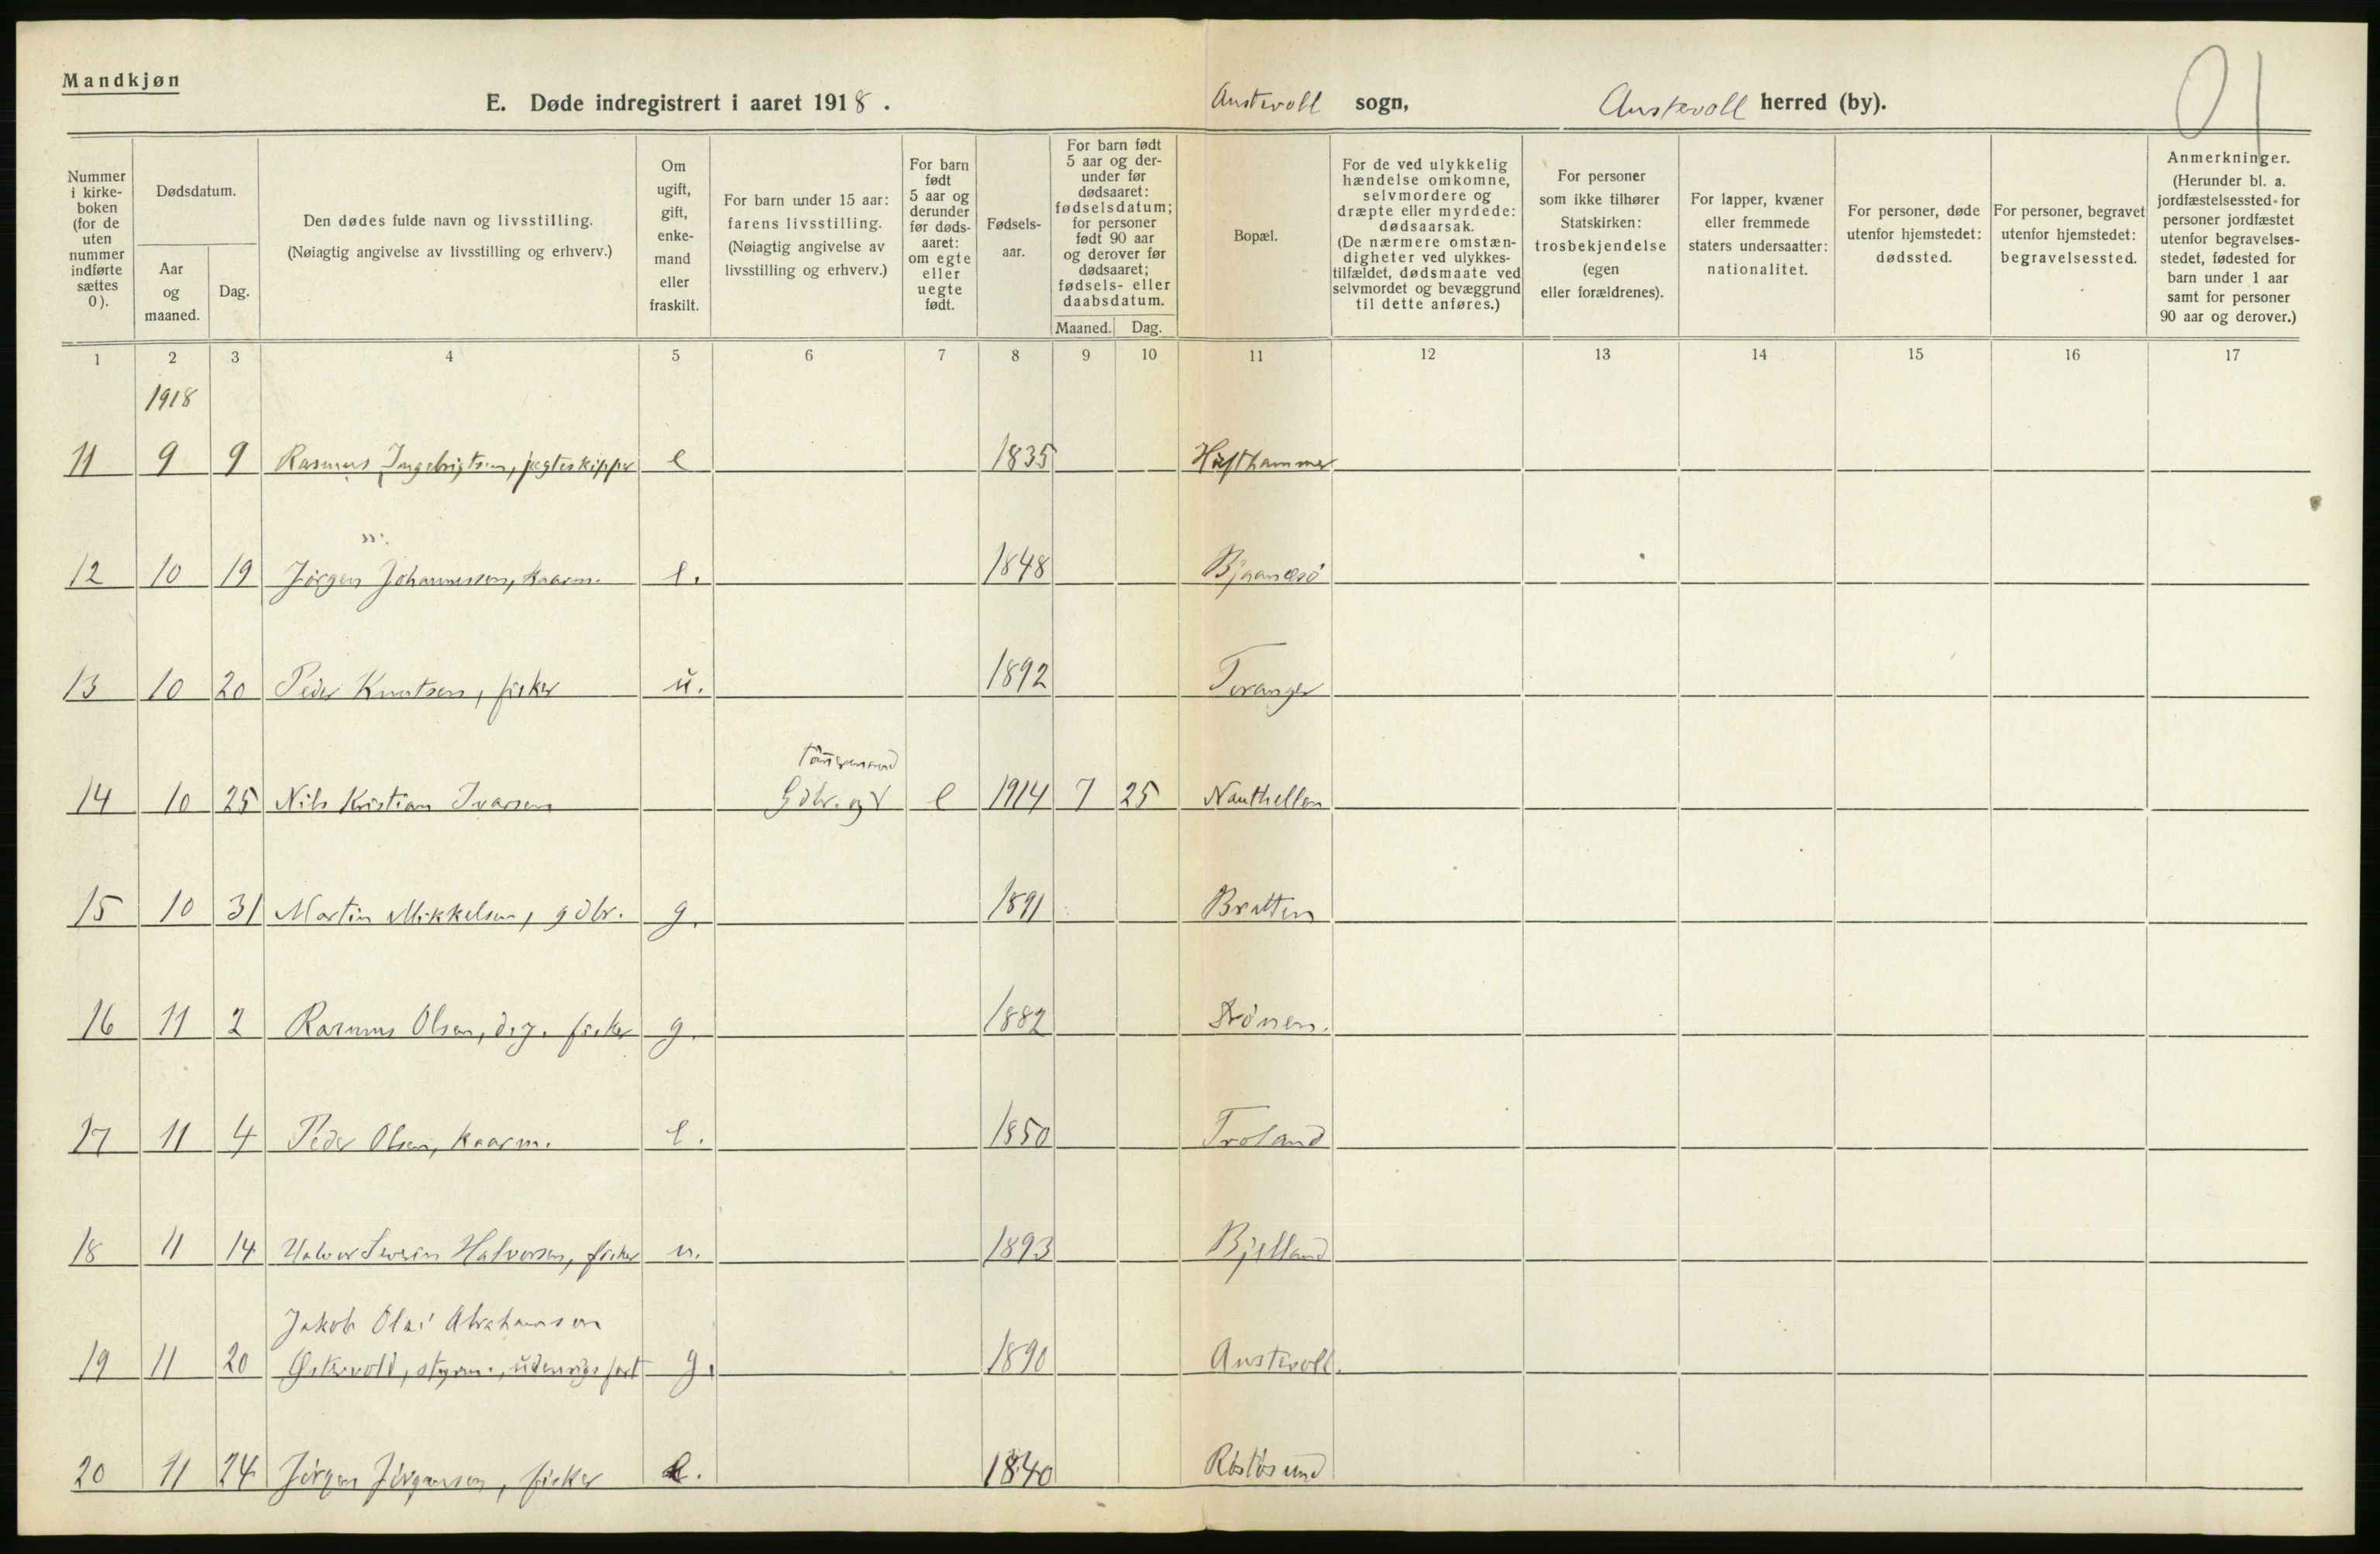 Mandkjøn
E. Døde indregistrert i aaret 1918. Austevoll sogn, Austevoll herred (by). 01
Nummer i kirkeboken (for de uten nummer indførte sættes 0).
Dødsdatum.
Aar og maaned.
Dag.
Den dødes fulde navn og livsstilling.
(Nøiagtig angivelse av livsstilling og erhverv.)
Om ugift, gift, enkemand eller fraskilt.
For barn under 15 aar: farens livsstilling.
(Nøiagtig angivelse av livsstilling og erhverv.)
For barn født 5 aar og derunder før dødsaaret: om egte eller uegte født.
Fødselsaar.
For barn født 5 aar og derunder før dødsaaret: fødselsdatum; for personer født 90 aar og derover før dødsaaret; fødsels- eller daabsdatum.
Maaned. Dag.
Bopæl.
For de ved ulykkelig hændelse omkomne, selvmordere og dræpte eller myrdede: dødsaarsak.
(De nærmere omstændigheter ved ulykkestilfældet, dødsmaate ved selvmordet og bevæggrund til dette anføres.)
For personer som ikke tilhører Statskirken: trosbekjendelse (egen eller forældrenes).
For lapper, kvæner eller fremmede staters undersaatter: nationalitet.
For personer, døde utenfor hjemstedet: dødssted.
For personer, begravet utenfor hjemstedet: begravelsessted.
Anmerkninger.
(Herunder bl. a. jordfæstelsessted for personer jordfæstet utenfor begravelsesstedet, fødested for barn under 1 aar samt for personer 90 aar og derover.)
1 2 3 4 5 6 7 8 9 10 11 12 13 14 15 16 17
1918
11 9 9 Rasmus Ingebrigtsen, jægteskipper e 1835 Hufthammer
12 10 19 Jörgen Johannessen, kaarm. e. 1848 Bjaanesö
13 10 20 Peder Knutsen, fisker u. 1892 Toranger
14 10 25 Nils Kristian Ivarsen Gdbr. og e 1914 7 25 Nauthellen
15 10 31 Martin Mikkelsen, gdbr. g. 1891 Bratten
16 11 2 Rasmus Olsen, fisker g. 1882 Drönen.
17 11 4 Peder Olsen, kaarm. e. 1850 Troland
18 11 14 Halvor Severin Halvorsen, fisker u. 1893 Bjelland
Jakob Olai Abrahamsen
19 11 20 Østervold, styrm., udenrigs fart g. 1890 Austevoll.
20 11 24 Jörgen Jörgensen, fisker e. 1840 Röstösund